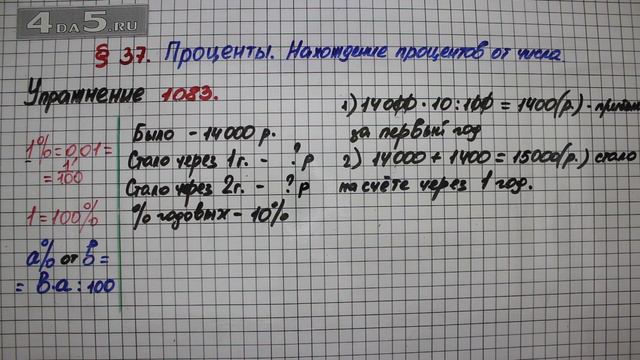 4DA5.RU
§ 37. Проценты. Нахождение процентов от числа.
Упражнение 1083.
1% = 0,01 =
= 1/100
1 = 100%
a% от b =
= b·a : 100
Было - 14000 р.
Стало через 1г. - ? р
Стало через 2г. - ? р
% годовых - 10%
1) 14000 · 10 : 100 = 1400(р.) -
за первый год
2) 14000 + 1400 = 15000(р.) стало
на счёте через 1 год.